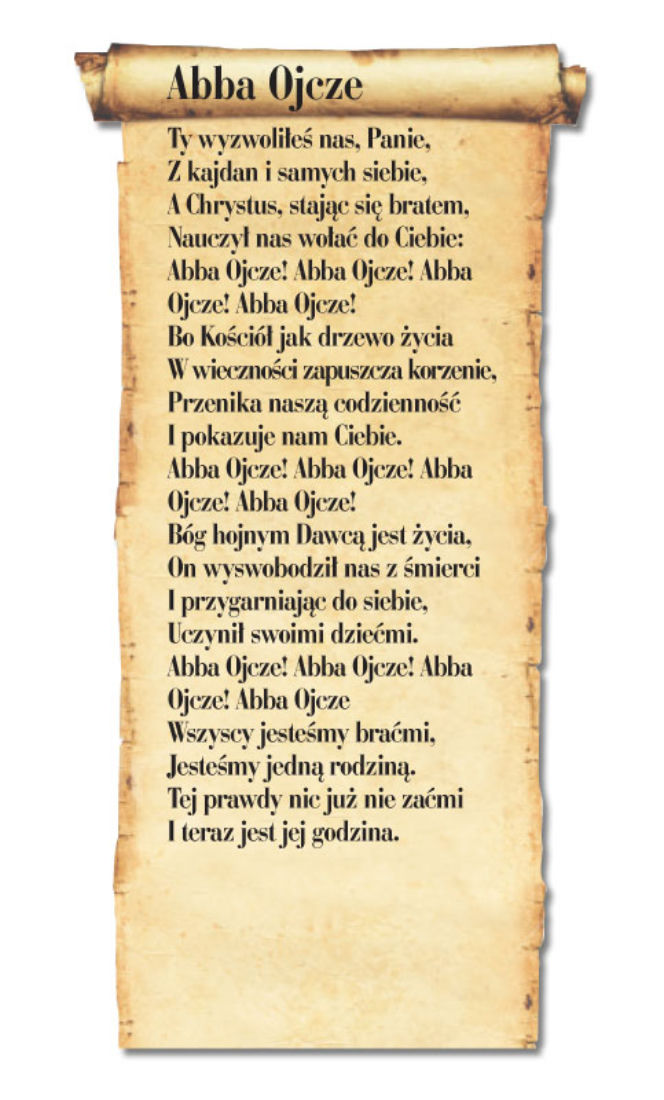 Abba Ojcze
Ty wyzwoliłeś nas, Panie,
Z kajdan i samych siebie,
A Chrystus, stając się bratem,
Nauczył nas wołać do Ciebie:
Abba Ojcze! Abba Ojcze! Abba
Ojcze! Abba Ojcze!
Bo Kościół jak drzewo życia
W wieczności zapuszcza korzenie,
Przenika naszą codzienność
I pokazuje nam Ciebie.
Abba Ojcze! Abba Ojcze! Abba
Ojcze! Abba Ojcze!
Bóg hojnym Dawcą jest życia,
On wyswobodził nas z śmierci
I przygarniając do siebie,
Uczynił swoimi dziećmi.
Abba Ojcze! Abba Ojcze! Abba
Ojcze! Abba Ojcze
Wszyscy jesteśmy braćmi,
Jesteśmy jedną rodziną.
Tej prawdy nic już nie zaćmi
I teraz jest jej godzina.